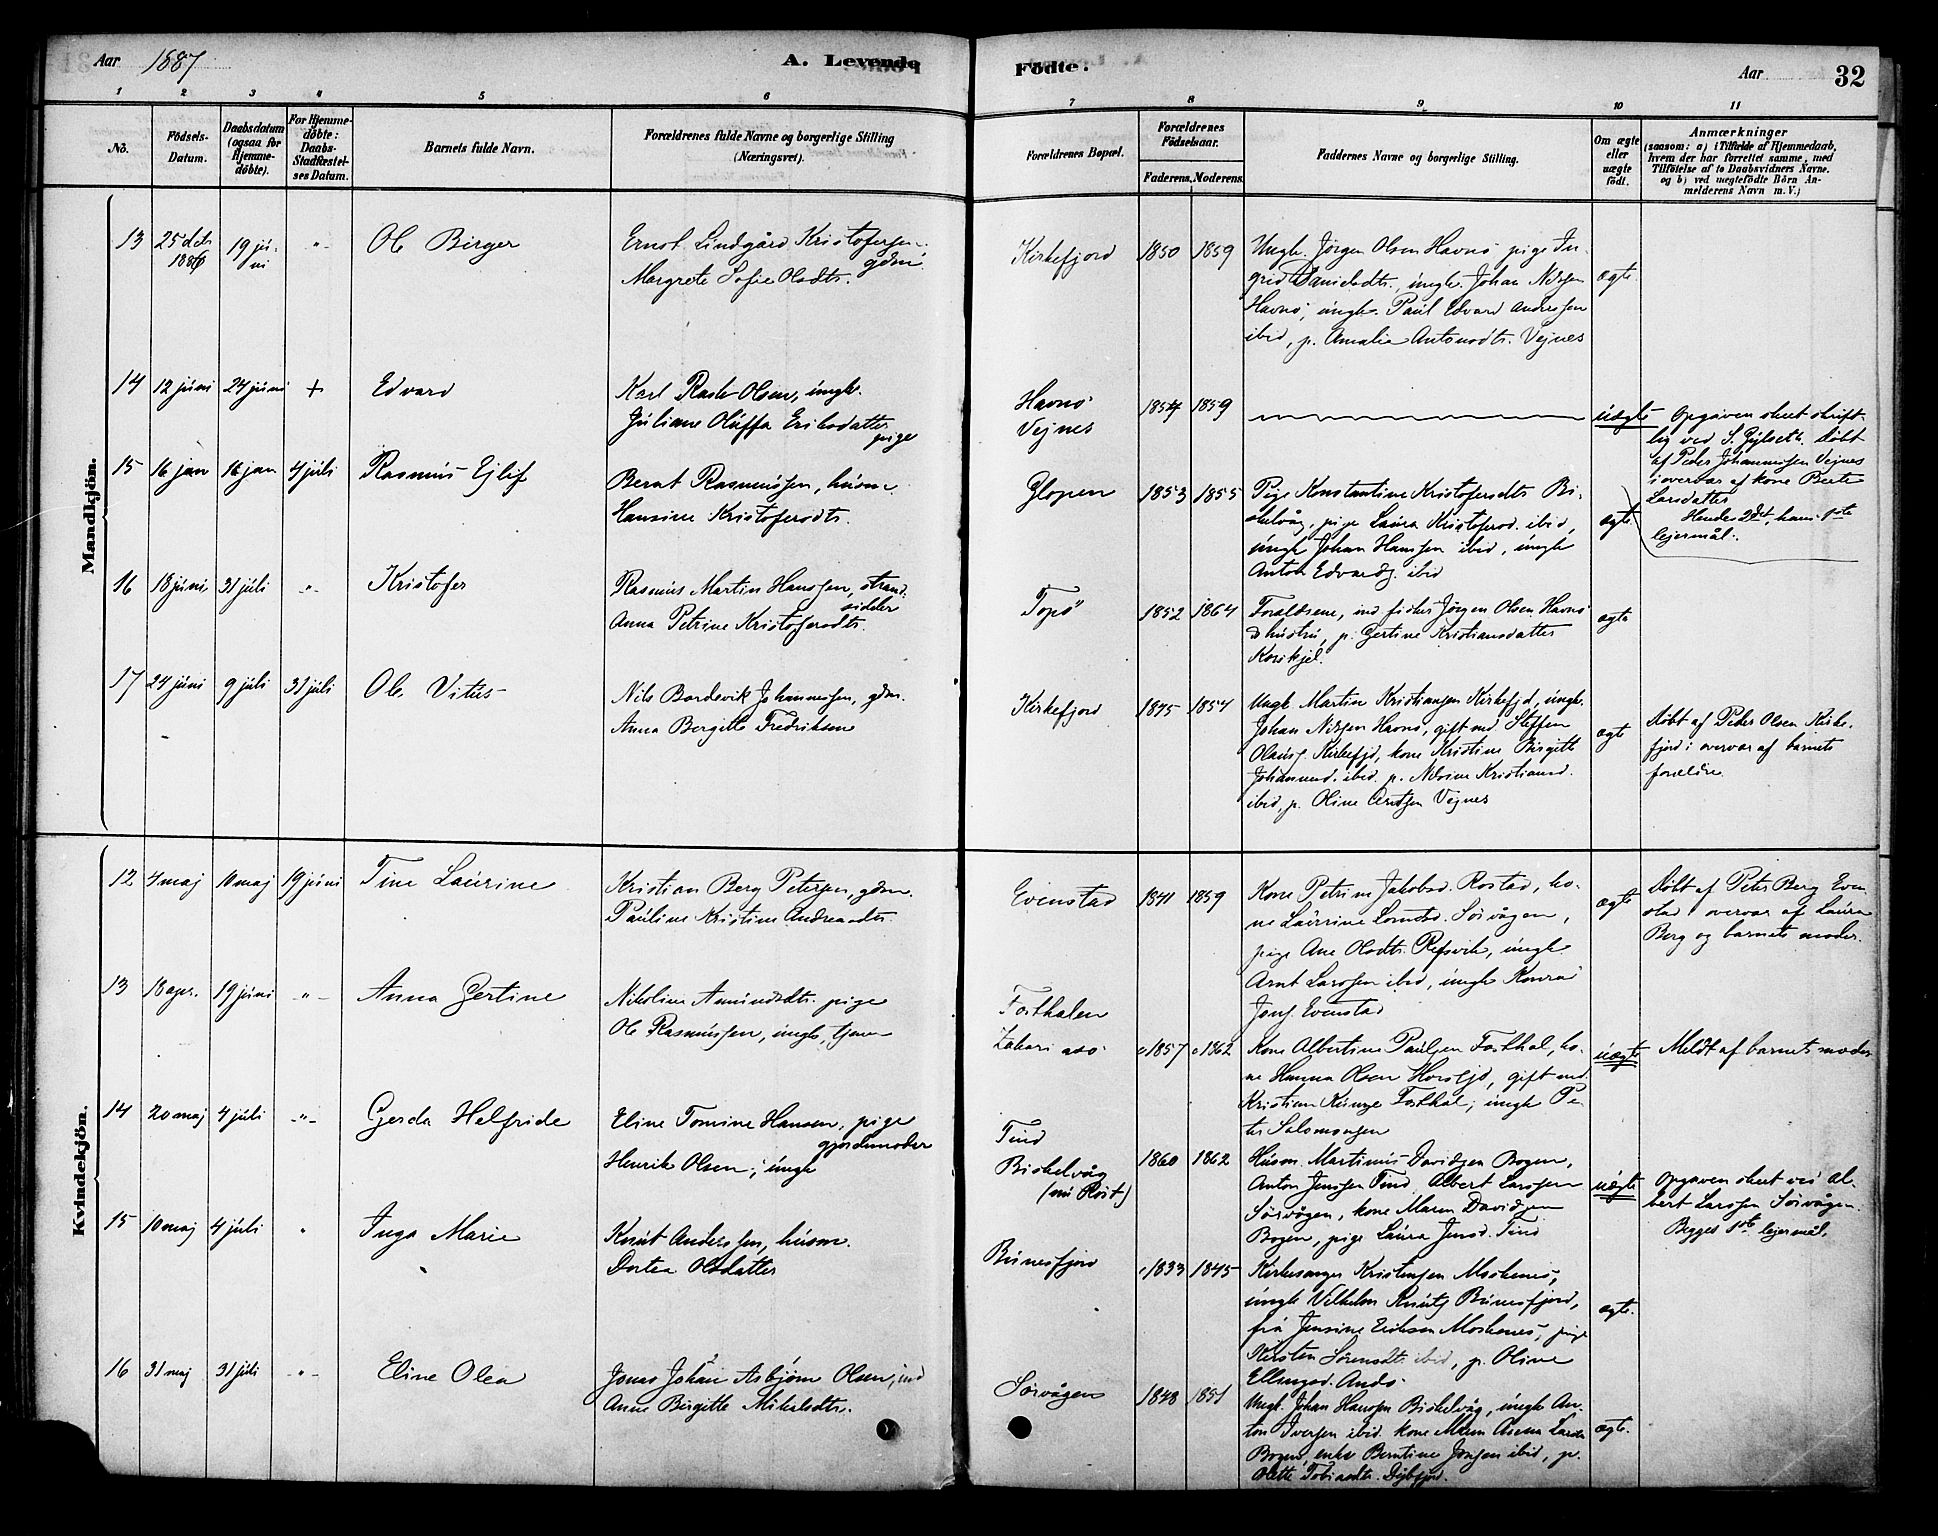 Aar 1887
A. Levende
Födte.
Aar
32
1 2 3 4 5 6 7 8 9 10 11
No.
Födsels-
Datum.
Daabsdatum
(ogsaa for
Hjemme-
döbte).
For Hjemme-
döbte:
Daabs-
Stadfæstel-
ses Datum.
Barnets fulde Navn.
Forældrenes fulde Navne og borgerlige Stilling
(Næringsvei).
Forældrenes Bopæl.
Forældrenes
Födselsaar.
Faderens. Moderens.
Faddernes Navne og borgerlige Stilling.
Om ægte
eller
uægte
födt.
Anmærkninger
(saasom: a) i Tilfælde af Hjemmedaab,
hvem der har forrettet samme, med
Tilföielse af to Daabsvidners Navne.
og b) ved uægtefödte Börn An-
melderens Navn m. V.)
Mandkjön.
13 25 dcb 1886 19 jú-
ni
-"-
Ole Birger
Ernst Lindgård Kristofersen
gdm
Margrete Sofie Olsdtr.
Kirkefjord
1850 1859
Ungk. Jörgen Olsen Havnö pige In-
grid Danieldtr., úngk. Johan Nilssen
Havnö, úngk. Paul Edvard Andressen
ibid, p. Amalie Antonsdtr. Vejnes
ægte.
14 12 júni 24 júni +
Edvard
Karl Rask Olsen, úngk.
Júliane Olúffa Eriksdatter
pige
Havnö
Vejnes
1854 1859
úægte
Opgaven skeet skrift-
lig ved S. Gjylseth. Döbt
af Peder Johannessen Vejnes
i overvær af kone Berte
Larsdatter
Hendes 2det, hans 1ste
lejermål.
15 16 jan 16 jan 4 júli
Rasmús Ejlif
Bernt Rasmússen, húsm.
Hansine Kristofersdtr.
Glopen
1853 1855
Pige Konstantine Kristofersdtr Bi-
skelvåg, pige Laúra Kristofersd. ibid,
úngk Johan Hanssen ibid, úngk
Anton Edvards. ibid
ægte
16 18 júni 31 júli -"-
Kristofer
Rasmús Martin Hanssen, strand-
sidder
Anna Petrine Kristofersdtr.
Topö
1852 1864
Forældrene, ind fisker Jörgen Olsen Havnö
& hústrú, p. Gertine Kristiansdatter
ægte
17 24 júni 9 júli 31 júli
Ole Vitús
Nils Bordevik Johannessen, gdm.
Anna Bergitte Fredriksen
Kirkefjord
1845 1854
Ungk Martin Kristiansen Kirkefjd, úngk.
Johan Nilssen Havnö, gift md. Steffen
Olaús. Kirkefjd, kone Kristine Birgitte
Johannesd. ibid. p. Nilsine Kristiansd.
ibid, p. Oline Arntsen Vejnes
ægte
Döbt af Peder Olsen Kirke-
fjord i overvær af barnets
forældre.
Kvindekjön.
12 4 maj 10 maj 19 júni
Tine Laúrine
Kristian Berg Petersen, gdm.
Paúline Kristine Andreasdtr
Evenstad
1841 1859
Kone Petrine Jakobsd. Rostad, ko-
ne Laúrine Sörvågen,
pige Ane Olsdtr. Refsvik, úngk
Arnt Larssen ibid, úngk Konrad
Jons. Evenstad
ægte
Döbt af Peter Berg Even-
stad i overvær af Laúra
Berg og barnets moder.
13 18 apr. 19 júni -"-
Anna Gertine
Nikoline Amúndsdtr. pige
Ole Rasmússen, úngk, tjener
Forsthalen
c1857 c1862
Kone Albertine Paúlsen Forsthal, ko-
ne Hanna Olsen, gift md.
Kristian Kúnze Forsthal, úngk Pe-
ter Salomonsen
úægte
Meldt af barnets moder
14 20 maj 4 júli -"-
Gjerda Helfride
Eline Tomine Hansen, pige
gjordemoder
Henrik Olsen, úngk
Tind
Biskelvåg
(nú Röst)
1860 1862
Húsm. Martinús Davidsen Bogen,
Anton Jenssen Tind, Albert Larssen
Sörvågen, kone Maren Davidsen
Bogen, pige Laúra Jensd. Tind
úægte
Opgaven skeet ved Al-
bert Larssen Sörvågen.
Begges 1ste lejermål.
15 10 maj 4 júli "
Inga Marie
Knút Anderssen, húsm.
Dortea Olsdatter
Búnesfjord
c1833 1845
Kirkesanger Kristensen Moskenes,
úngk Vilhelm Knúts. Búnesfjord,
frú Jensine Eriksen Moskenes, pige
Kirsten Sörensdtr. ibid, p. Oline
Ellingsd. Andö.
ægte.
16 31 maj 31 júli -"-
Eline Olea
Jonas Johan Asbjörn Olsen, ind
Anne Birgitte Mikalsdtr.
Sörvågen
1848 1851
Ungk. Johan Hanssen Biskelvåg, úngk An-
ton Iversen ibid. kone Maren
Bogen, enke Berntine Jonsen ibid, p.
Olette Tobiasdtr. Djúpfjord.
ægte.